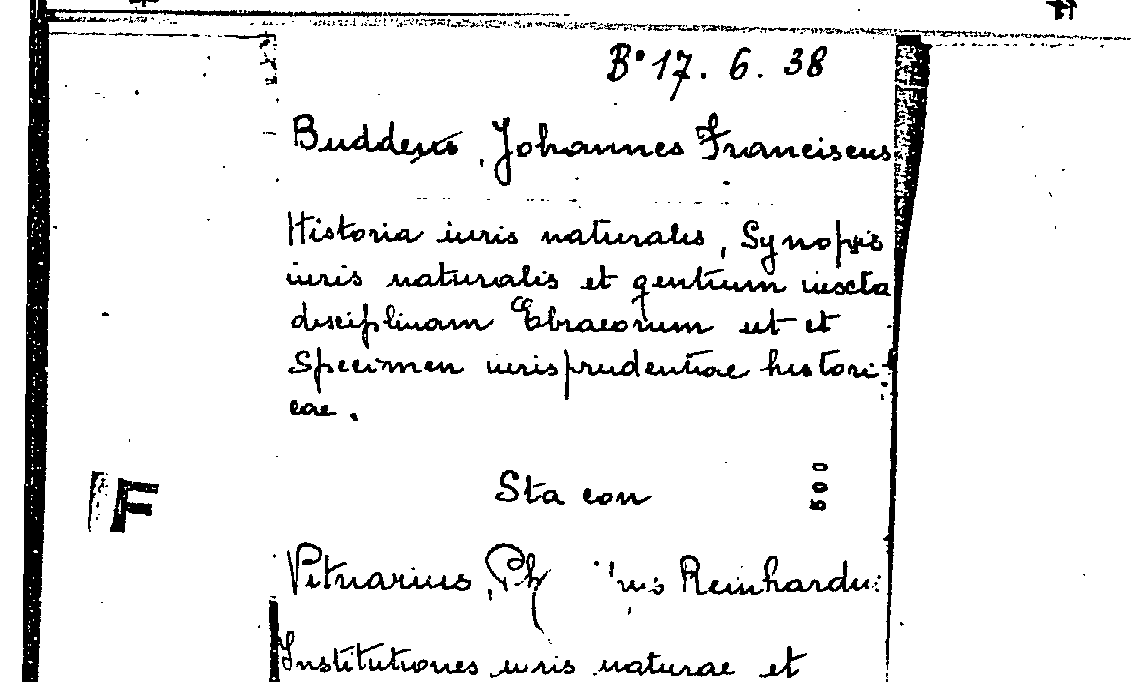 B° 17. 6. 38
Buddeus, Johannes Franciscus
Historia iuris naturalis, Synopsis
iuris naturalis et gentium iuxta
disciplinam Ebraeorum et et
Specimen iurisprudentiae histori-
cae.
Sta con
500
F
Vitriarius, Ph nus Reinhardu
Institutiones iuris naturae et